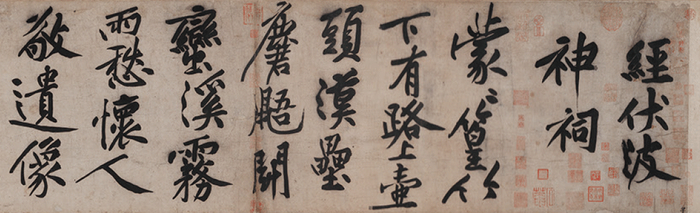 經伏波
神祠
蒙〻篁竹
下有路上壺
頭漢壘
麏鼯鬭
蠻溪霧
雨愁懷人
敬遺像